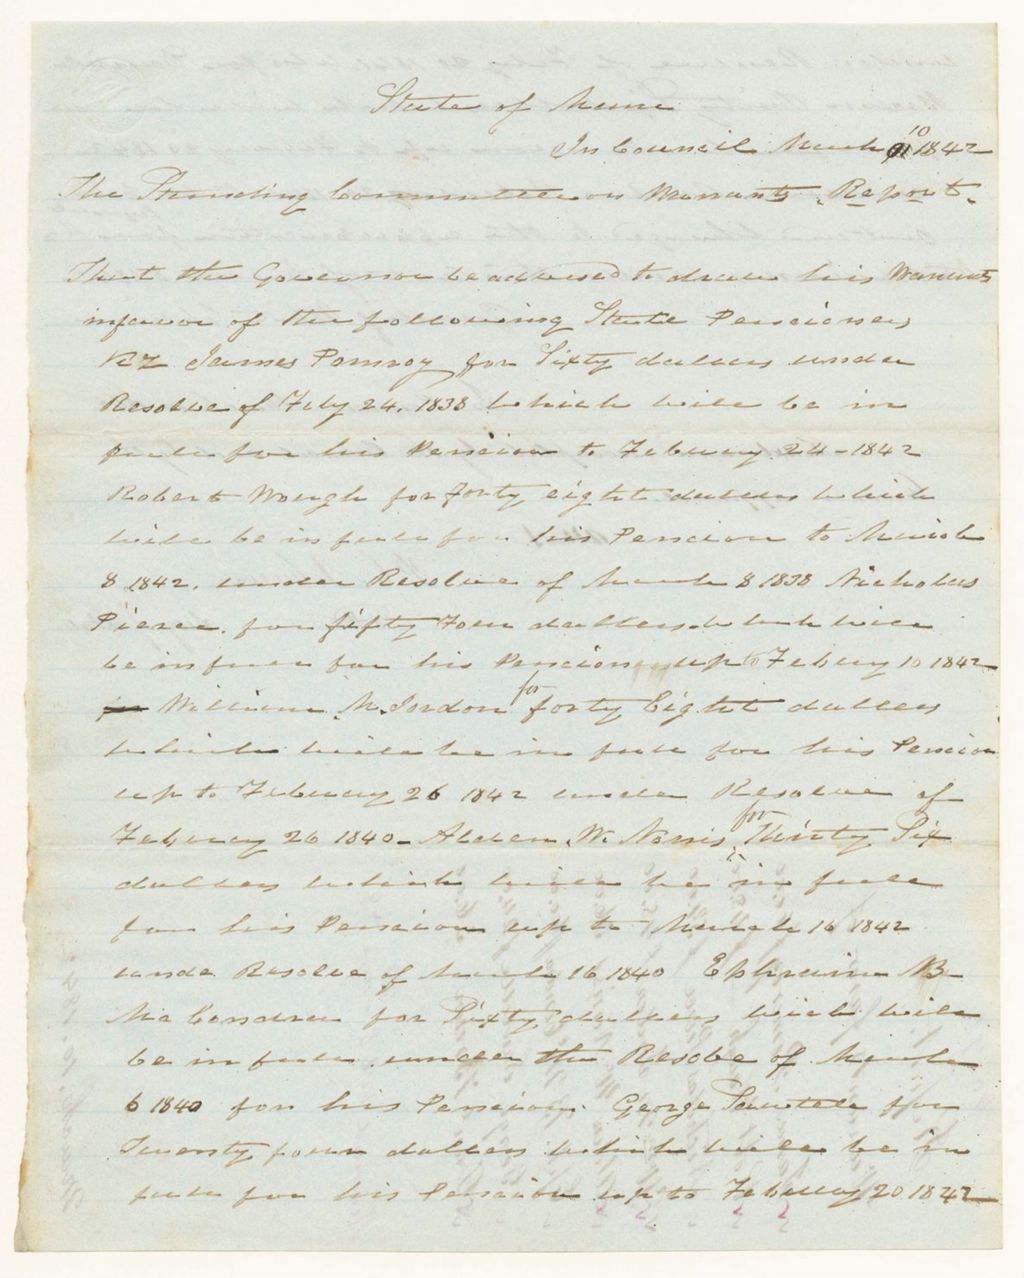 State of Maine
In Council March 10 1842
The Standing Committee on Warrants, Report,
That the Governor be advised to draw his Warrants
in favor of the following State Pensioners
Viz James Pomroy, for Sixty dollars under
Resolve of Feby 24, 1838 which will be in
full for his Pension to February 24-1842
Robert Waugh for forty eight dollars which
will be in full for his Pension to March
8 1842, under Resolve of March 8 1838 Nicholas
Pierce, for fifty Four dollars which will
be in full for his Pension up to Febuary 10 1842
William M. Jordon for forty Eight dollars
which will be in full for his Pension
up to February 26 1842 under Resolve of
February 26 1840- Alden W. Norris, for Thirty Six
dollars which will be in full
for his Pension up to March 16 1842
unde Resolve of March 16 1840 Ephraim B
for Sixty dollars wich will
be in full, under the Resolve of March
6 1840 for his Pension. George Sawtell for
Twenty four dollars which will be in
full for his Pension up to Febuary 20 1842